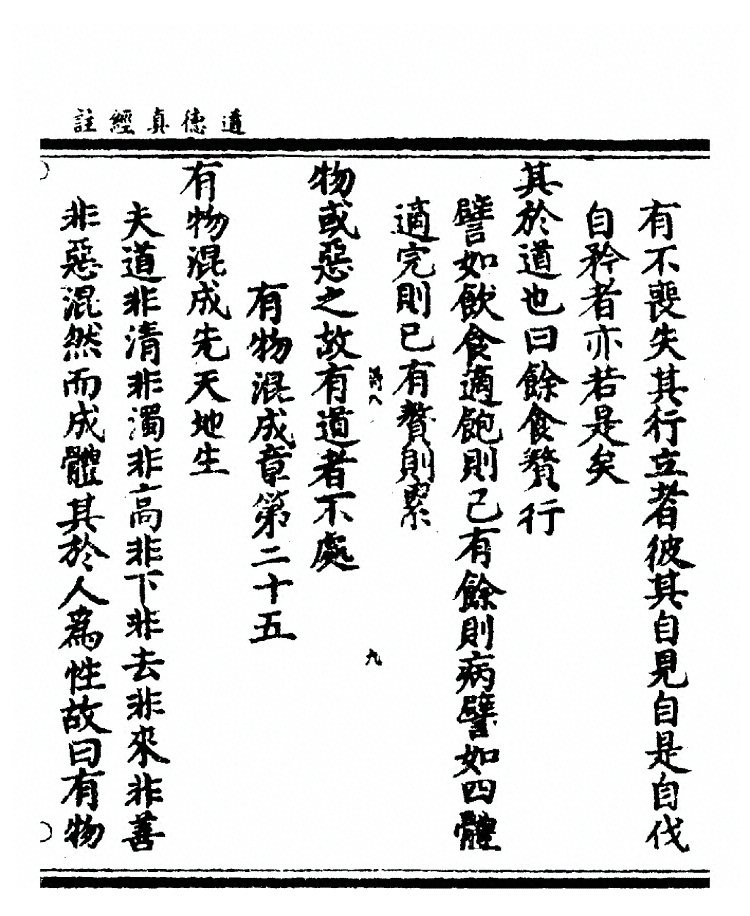 道德真經註
有不喪失其行立者彼其自見自是自伐
自矜者亦若是矣
其於道也曰餘食贅行
譬如飲食適飽則已有餘則病譬如四體
適完則已有贅則累
九
物或惡之故有道者不處
有物混成章第二十五
有物混成先天地生
夫道非清非濁非高非下非去非來非善
非惡混然而成體其於人為性故曰有物